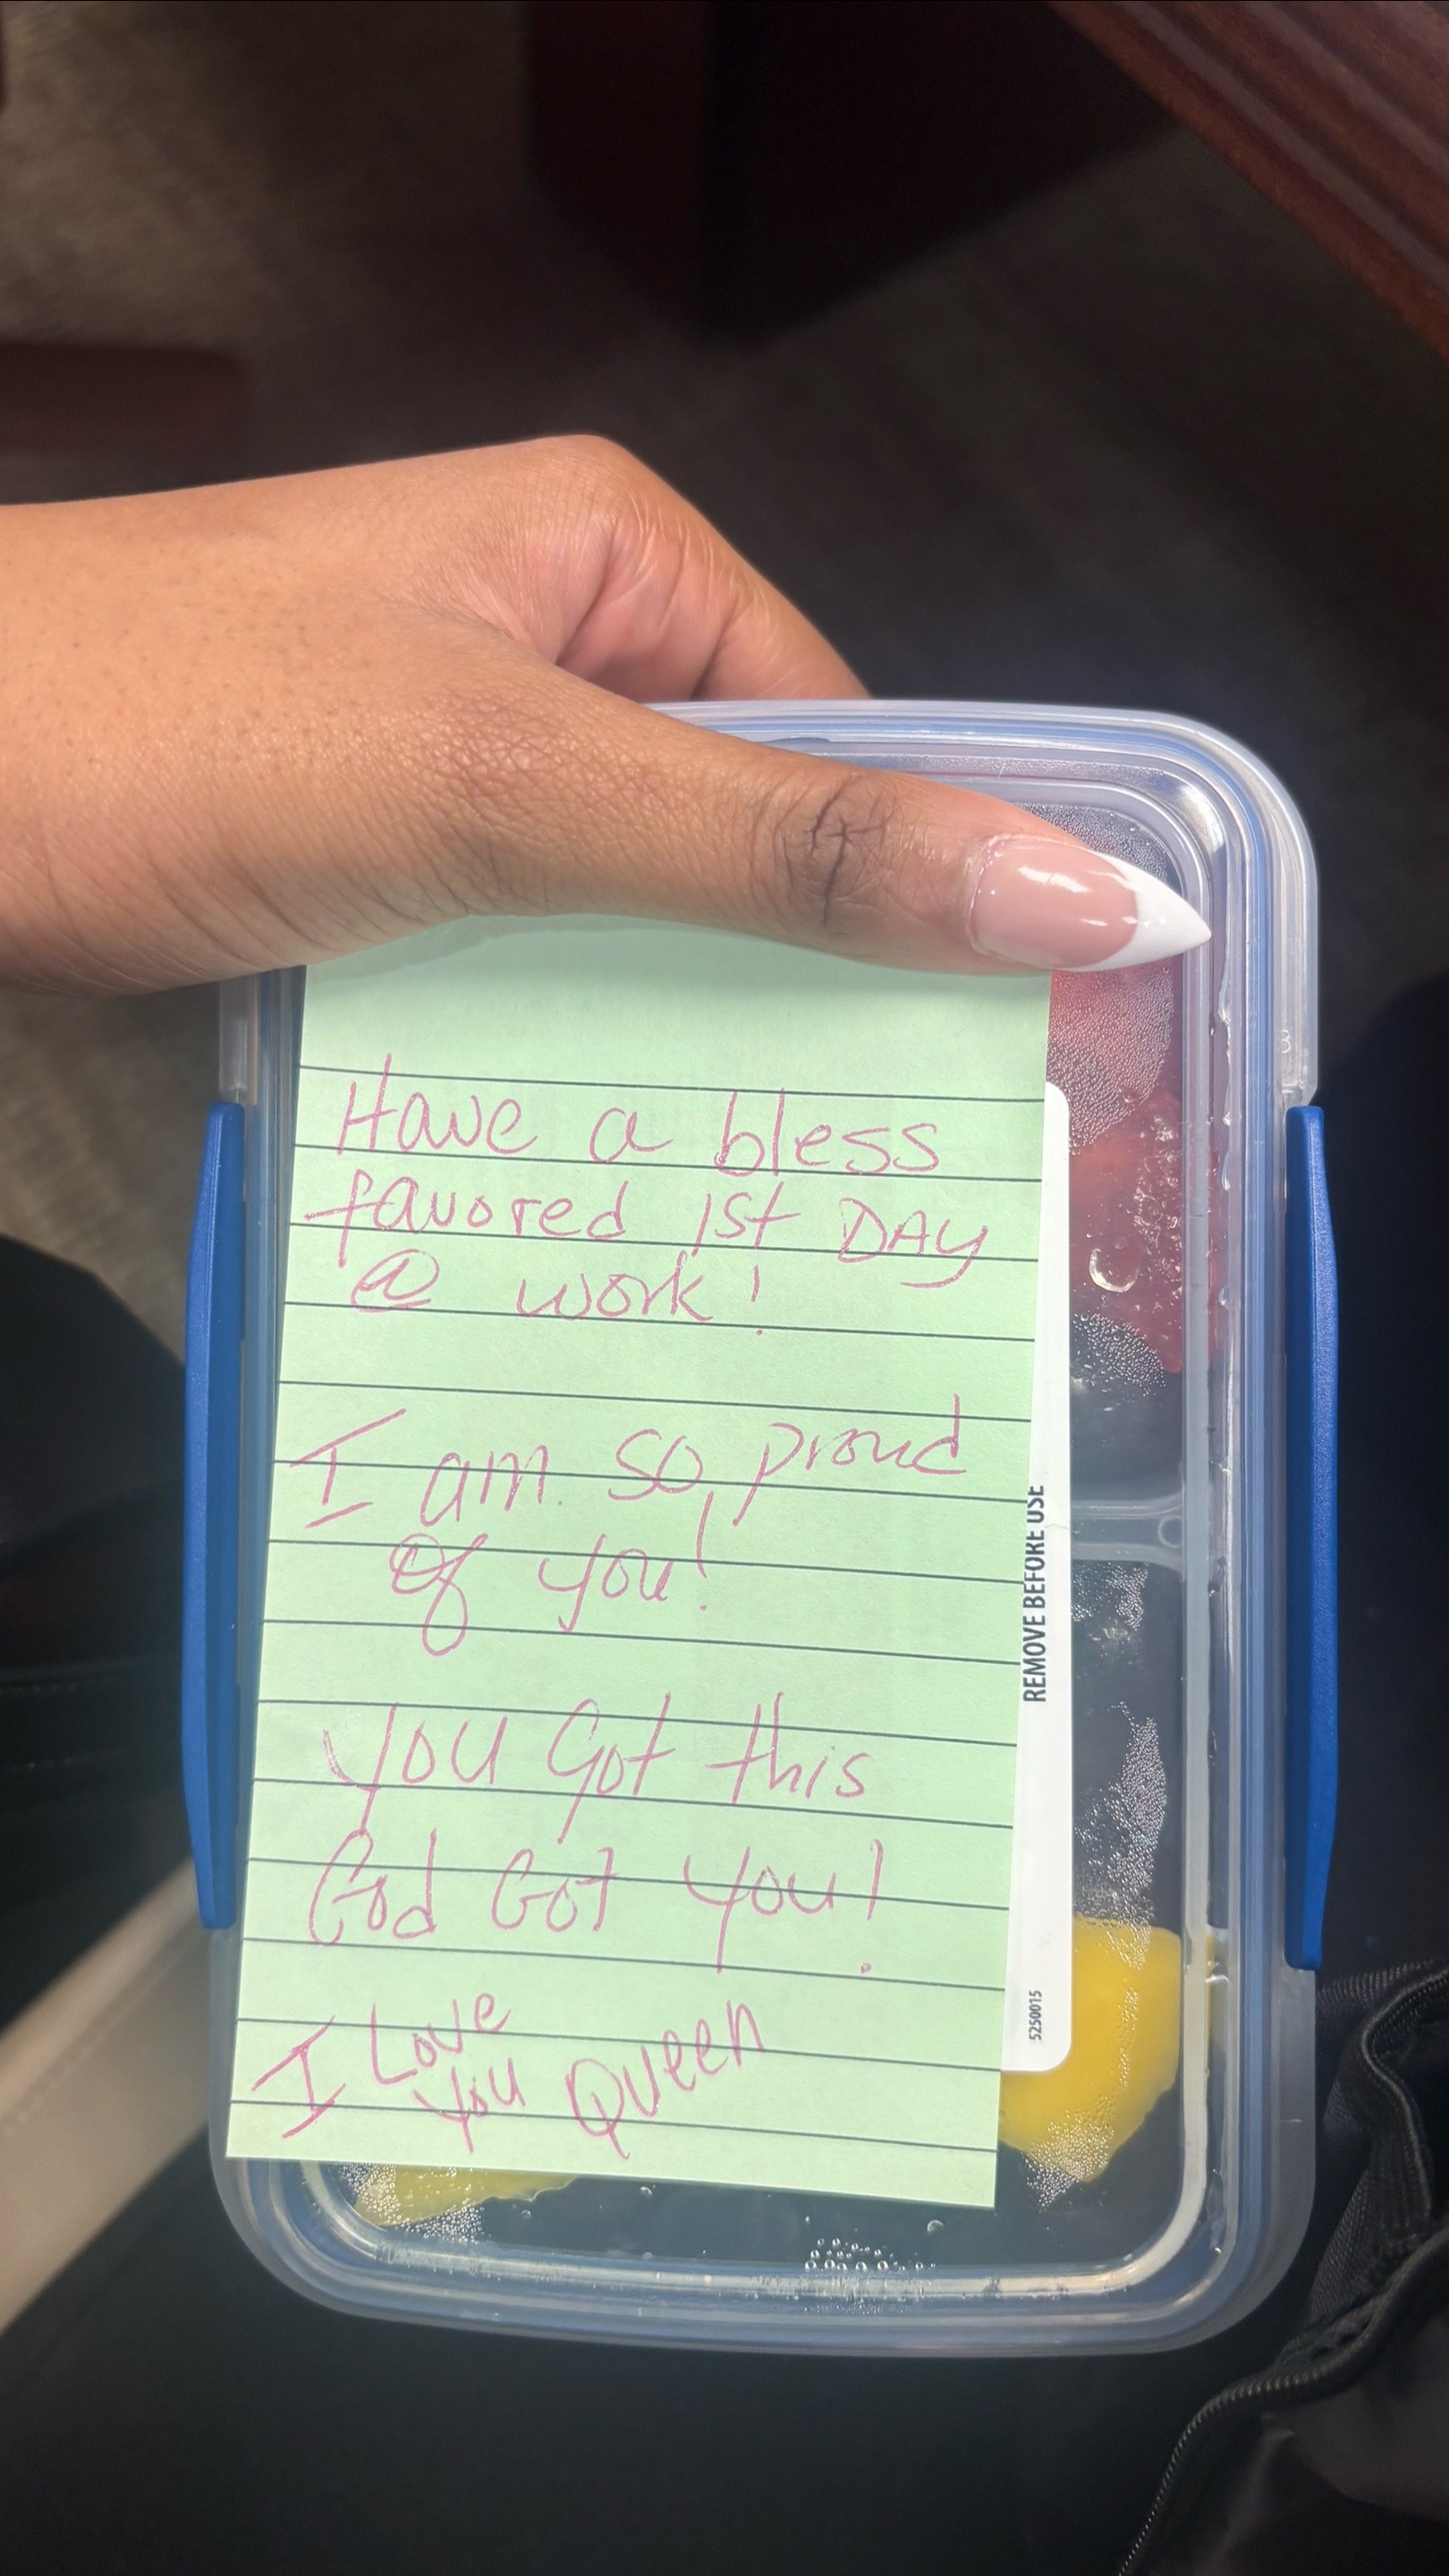 Have a bless
favored 1st DAY
@ work!
I am so proud
of you!
You Got this
God Got You!
I Love
You Queen
REMOVE BEFORE USE
5250015